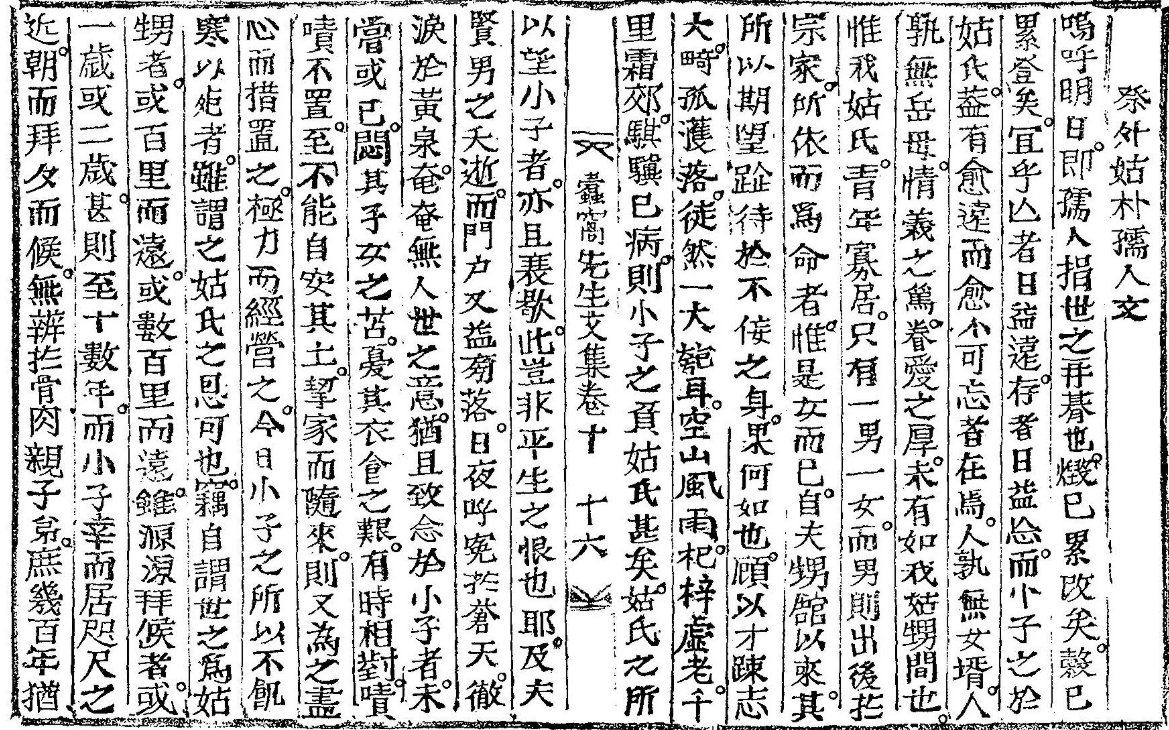 祭外姑朴孺人文
嗚呼明日。即孺人捐世之再朞也。燧已累改矣。穀已
累登矣。宜乎亾者日益遠。存者日益忘。而小子之於
姑氏。葢有愈遠而愈不可忘者在焉。人孰無女壻。人
孰無岳母。情義之篤。眷愛之厚。未有如我姑甥間也。
惟我姑氏。青年寡居。只有一男一女。而男則出後於
宗家。所依而爲命者。惟是女而已。自夫甥舘以來。其
所以期望跂待於不侫之身。果何如也。顧以才踈志
大。畸孤濩落。徒然一大匏耳。空山風雨。杞梓虛老。千
里霜郊。騏驥已病。則小子之負姑氏甚矣。姑氏之所
蠹窩先生文集卷十 十六
以望小子者。亦且衰歇。此豈非平生之恨也耶。及夫
賢男之夭逝。而門户又益剪落。日夜呼寃於蒼天。徹
淚於黃泉。奄奄無人世之意。猶且致念於小子者。未
嘗或已。悶其子女之苦。憂其衣食之艱。有時相對。嘖
嘖不置。至不能自安其土。挈家而隨來。則又為之盡
心而措置之。極力而經營之。今日小子之所以不飢
寒以死者。雖謂之姑氏之恩可也。竊自謂世之爲姑
甥者。或百里而遠。或數百里而遠。雖源源拜候者。或
一歲或二歲。甚則至十數年。而小子幸而居咫尺之
近。朝而拜夕而候。無辨於骨肉親子弟。庶幾百年猶